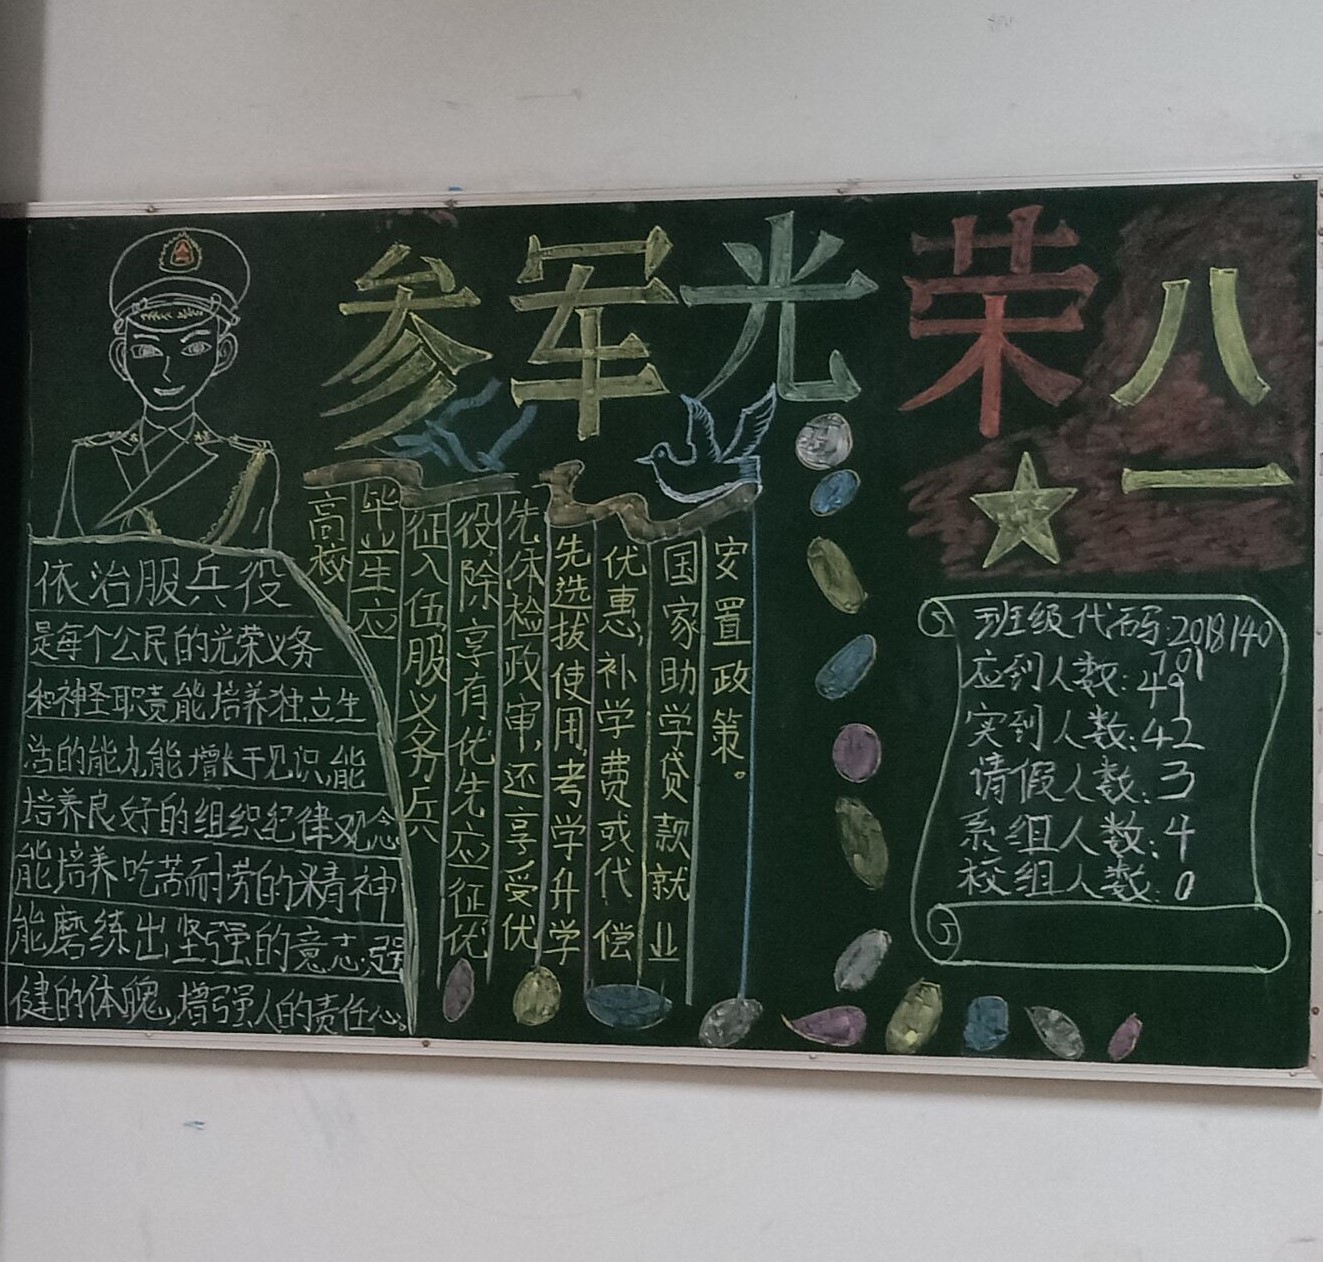 参军光荣
八一
依治服兵役
是每个公民的光荣义务
和神圣职责,能培养独立生
活的能力,能增长于见识,能
培养良好的组织纪律观念
能培养吃苦而耐劳的精神
能磨练出坚强的意志,强
健的体魄,增强人的责任心。
高校
毕业生应
征入伍服义务兵
役除享有优先应征优
先体检政审,还享受优
先选拔使用,考学升学
优惠,补学费或代偿
国家助学贷款就业
安置政策。
班级代码:2018140
701
应到人数:49
实到人数:42
请假人数:3
系组人数:4
校组人数:0